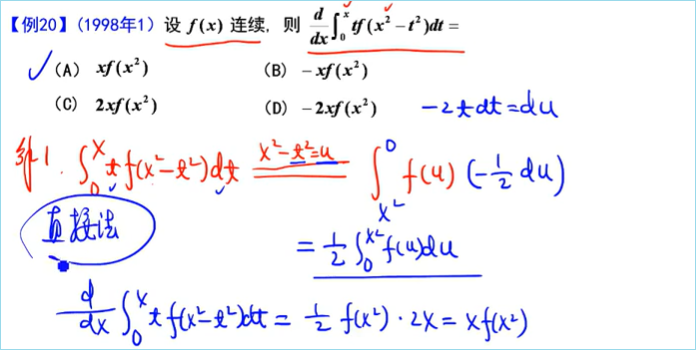 【例20】(1998年1) 设 f(x) 连续, 则 d/dx ∫₀ˣ tf(x²−t²)dt =
(A) xf(x²) (B) −xf(x²)
(C) 2xf(x²) (D) −2xf(x²)
−2tdt=du
1. ∫₀ˣ tf(x²−t²)dt x²−t²=u ∫_{x²}^0 f(u)(−1/2 du)
直接法
= 1/2 ∫₀^{x²} f(u)du
d/dx ∫₀ˣ tf(x²−t²)dt = 1/2 f(x²)·2x = xf(x²)